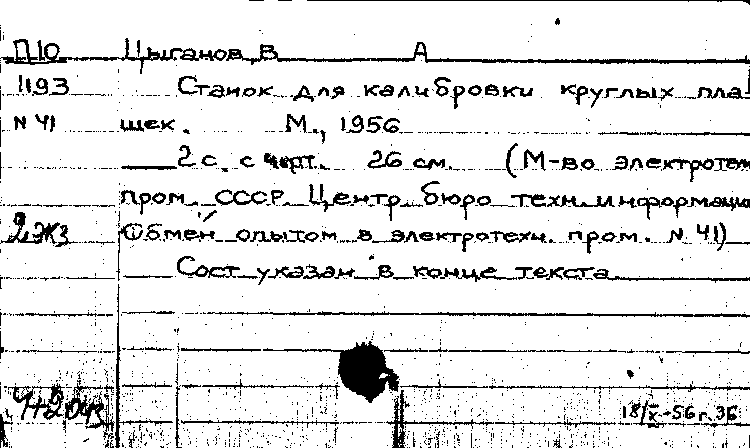 П10 Цыганов, В А
1193 Станок для калибровки круглых пла-
N 41 шек. М., 1956
2 с. с черт. 26 см. (М-во электротехн
пром. СССР. Центр. бюро техн. информации
2 экз Обмен опытом в электротехн. пром. N 41)
Сост указан в конце текста.
18/X-56 г. 36